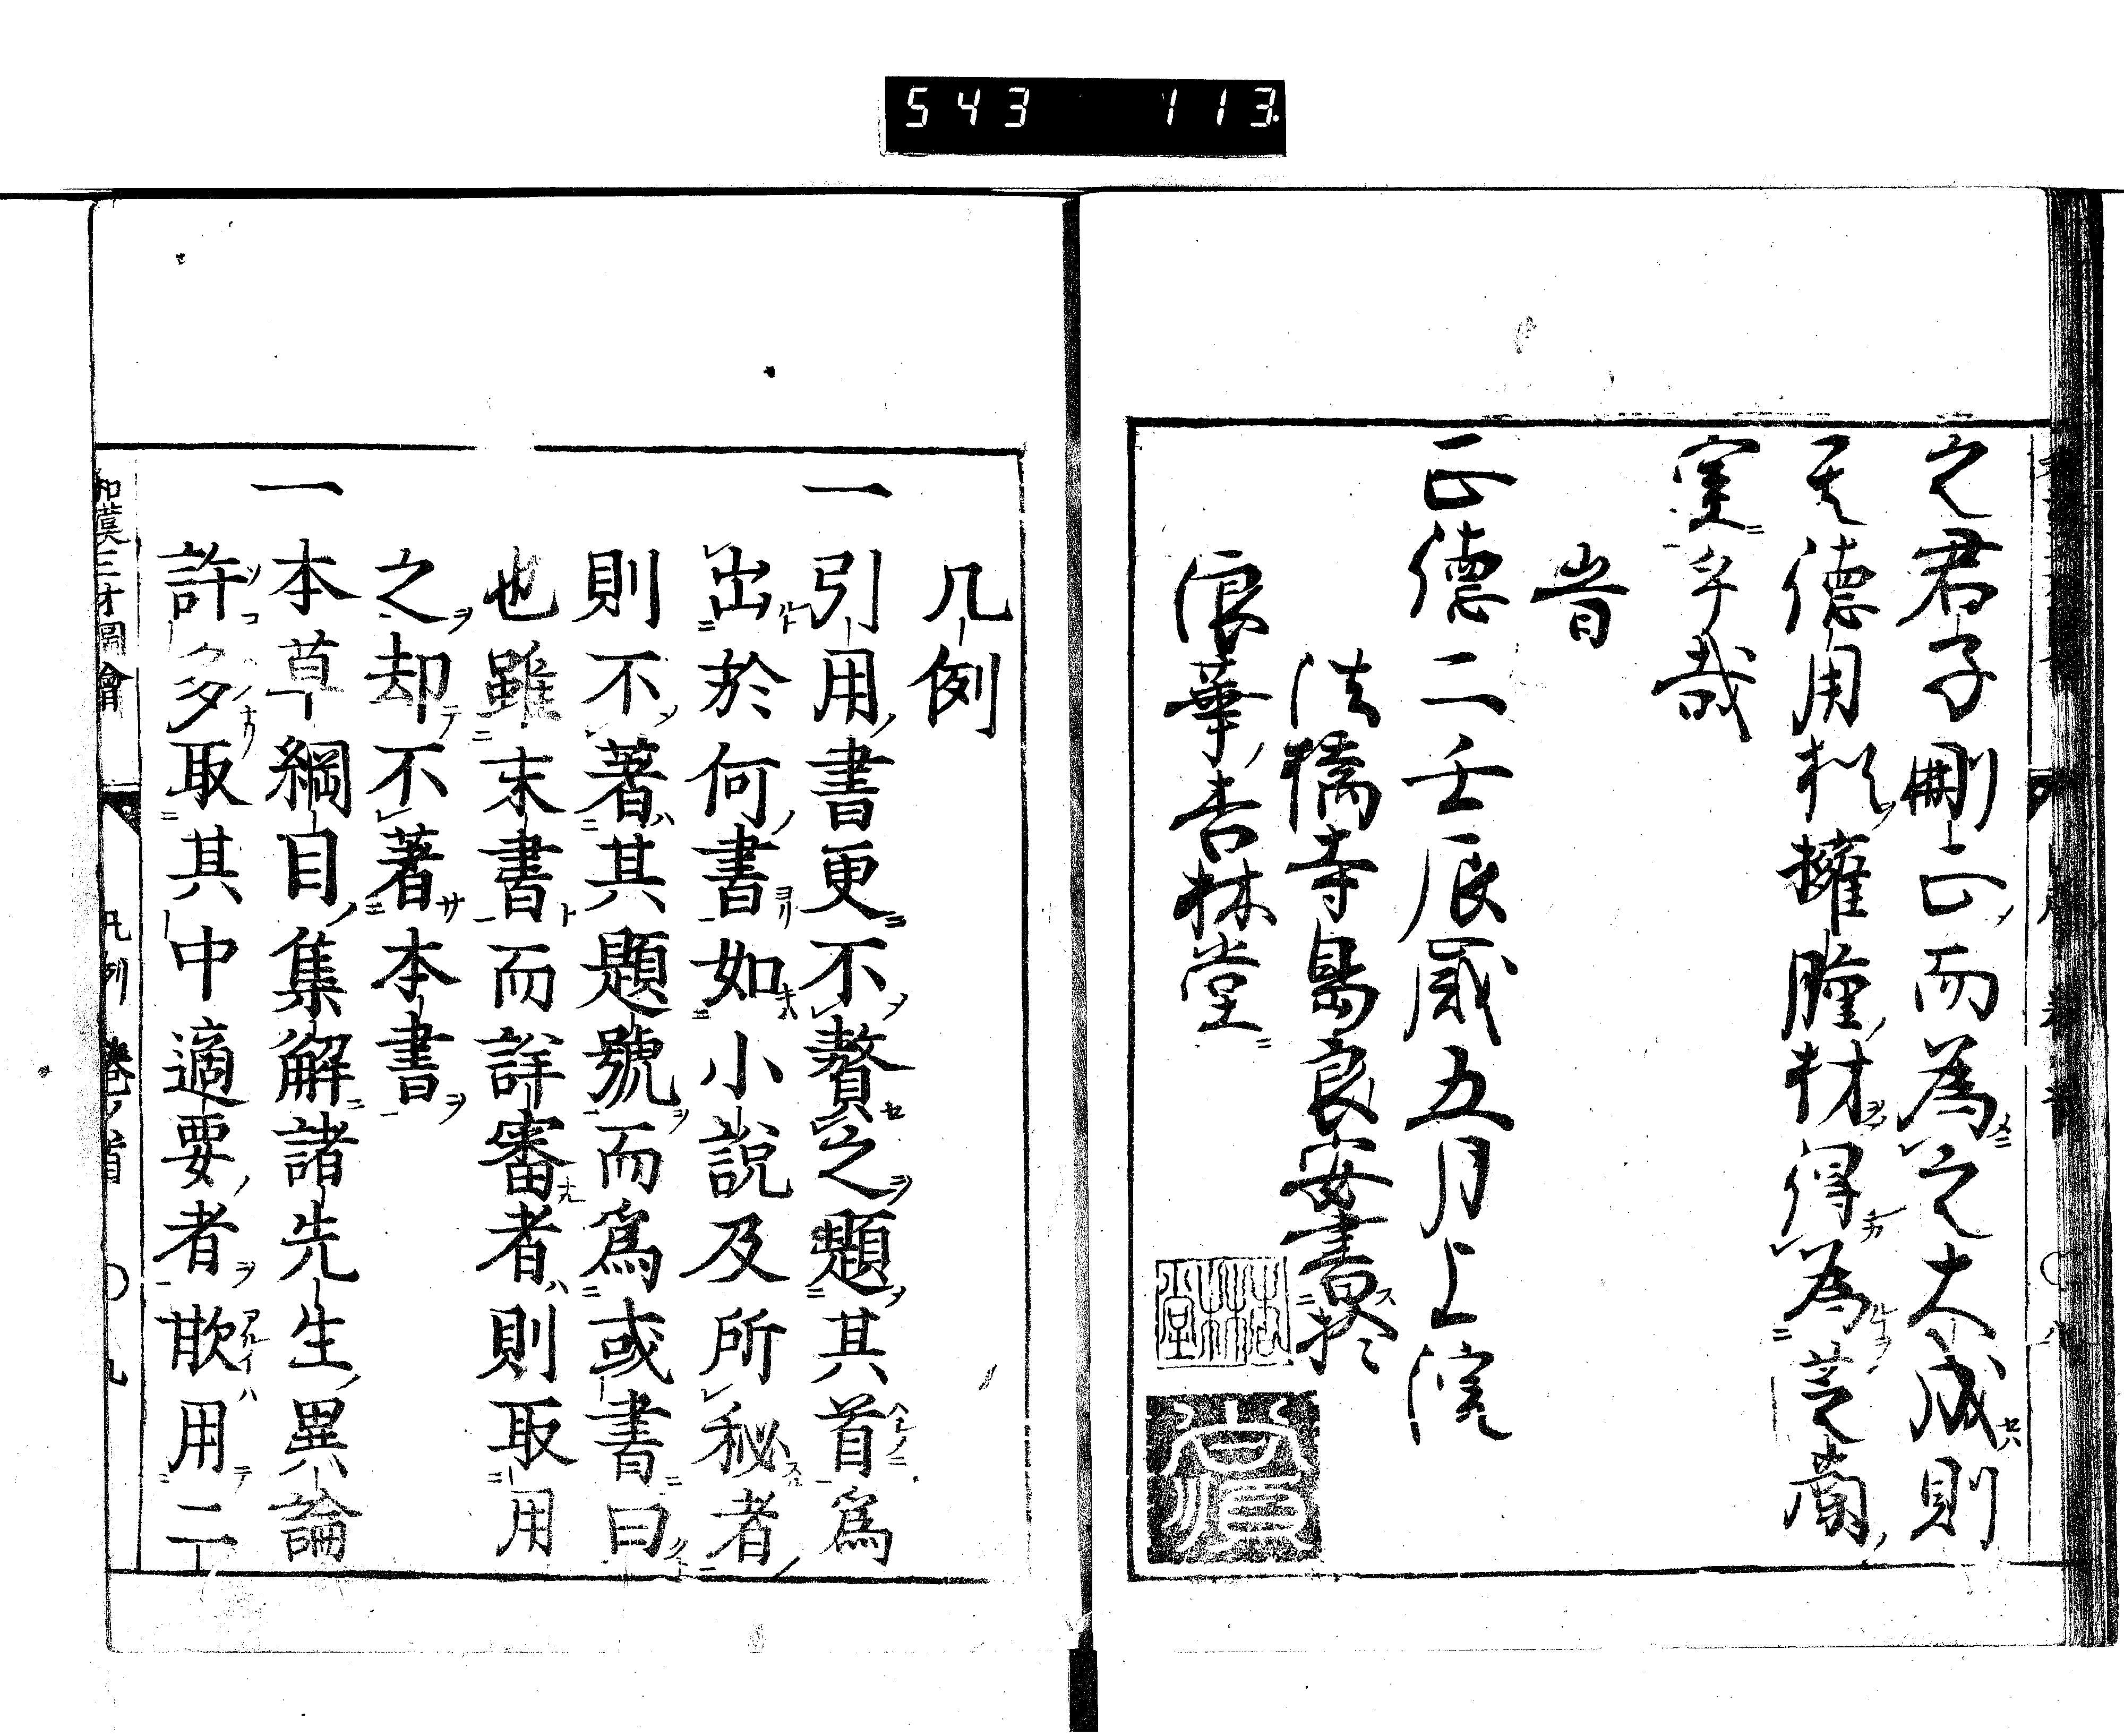 543 113
之君子刪正而為之大成則
其德用擬擁腫材得為芝蘭
室乎哉
旹
正德二壬辰歲五月上浣
法橋寺島良安書於
浪華杏林堂
杏林堂
凡例
一引用書更不贅之題其首爲
出於何書如小說及所秘者
則不著其題號而爲或書曰
也雖末書而詳審者則取用
之却不著本書
一本草綱目集解諸先生異論
許多取其中適要者或用二
和漢三才圖會 凡例 卷首 〇 九